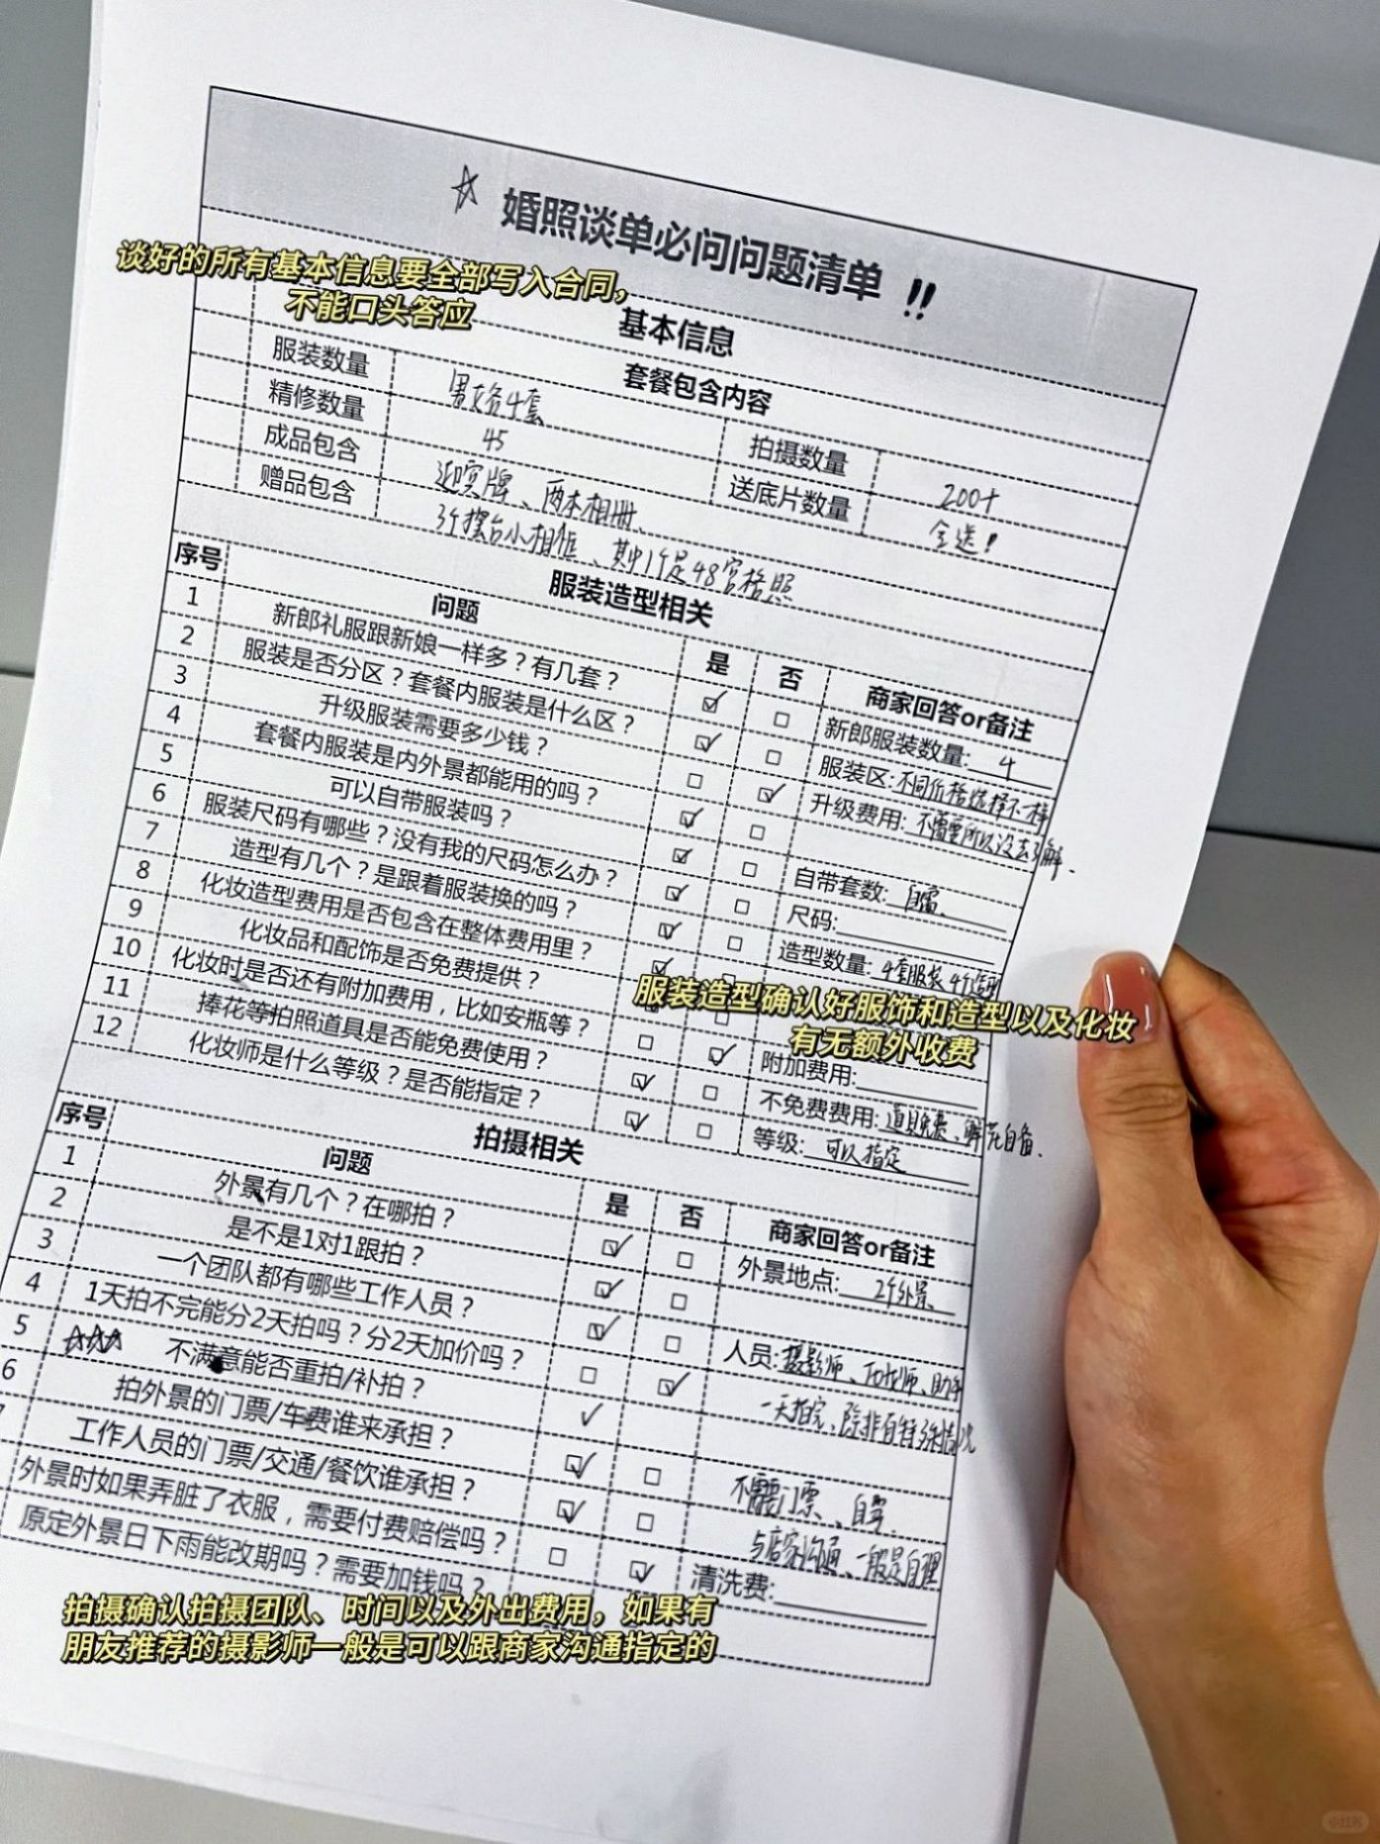 ☆ 婚照谈单必问问题清单 !!
谈好的所有基本信息要全部写入合同，
不能口头答应
基本信息
套餐包含内容
服装数量 男女各4套 拍摄数量 200+
精修数量 45 送底片数量 全送！
成品包含 迎宾牌、两本相册、
赠品包含 3个摆台小相框、其中1个是48宫格照
服装造型相关
序号 问题 是 否 商家回答or备注
1 新郎礼服跟新娘一样多？有几套？ ☑ □ 新郎服装数量: 4
2 服装是否分区？套餐内服装是什么区？ ☑ □ 服装区: 不同价格选择不一样
3 升级服装需要多少钱？ □ ☑ 升级费用: 不需要所以没去了解.
4 套餐内服装是内外景都能用的吗？ ☑ □
5 可以自带服装吗？ ☑ □ 自带套数: 自带、
6 服装尺码有哪些？没有我的尺码怎么办？ ☑ □ 尺码:
7 造型有几个？是跟着服装换的吗？ ☑ □ 造型数量: 4套服装4个造型
8 化妆造型费用是否包含在整体费用里？ ☑
9 化妆品和配饰是否免费提供？
服装造型确认好服饰和造型以及化妆
有无额外收费
10 化妆时是否还有附加费用，比如安瓶等？ □ ☑ 附加费用:
11 捧花等拍照道具是否能免费使用？ ☑ □ 不免费费用: 道具免费、鲜花自备.
12 化妆师是什么等级？是否能指定？ ☑ □ 等级: 可以指定
拍摄相关
序号 问题 是 否 商家回答or备注
1 外景有几个？在哪拍？ ☑ □ 外景地点: 2个外景、
2 是不是1对1跟拍？ ☑ □
3 一个团队都有哪些工作人员？ ☑ □ 人员: 摄影师、化妆师、助手
4 1天拍不完能分2天拍吗？分2天加价吗？ □ ☑ 一天拍完、除非有特殊情况
5 ☆☆☆ 不满意能否重拍/补拍？ ✓
6 拍外景的门票/车费谁来承担？ ☑ □ 不需要门票、自驾.
工作人员的门票/交通/餐饮谁承担？ ☑ □ 与店家沟通、一般是自理
外景时如果弄脏了衣服，需要付费赔偿吗？ □ ☑ 清洗费:
原定外景日下雨能改期吗？需要加钱吗？
拍摄确认拍摄团队、时间以及外出费用，如果有
朋友推荐的摄影师一般是可以跟商家沟通指定的